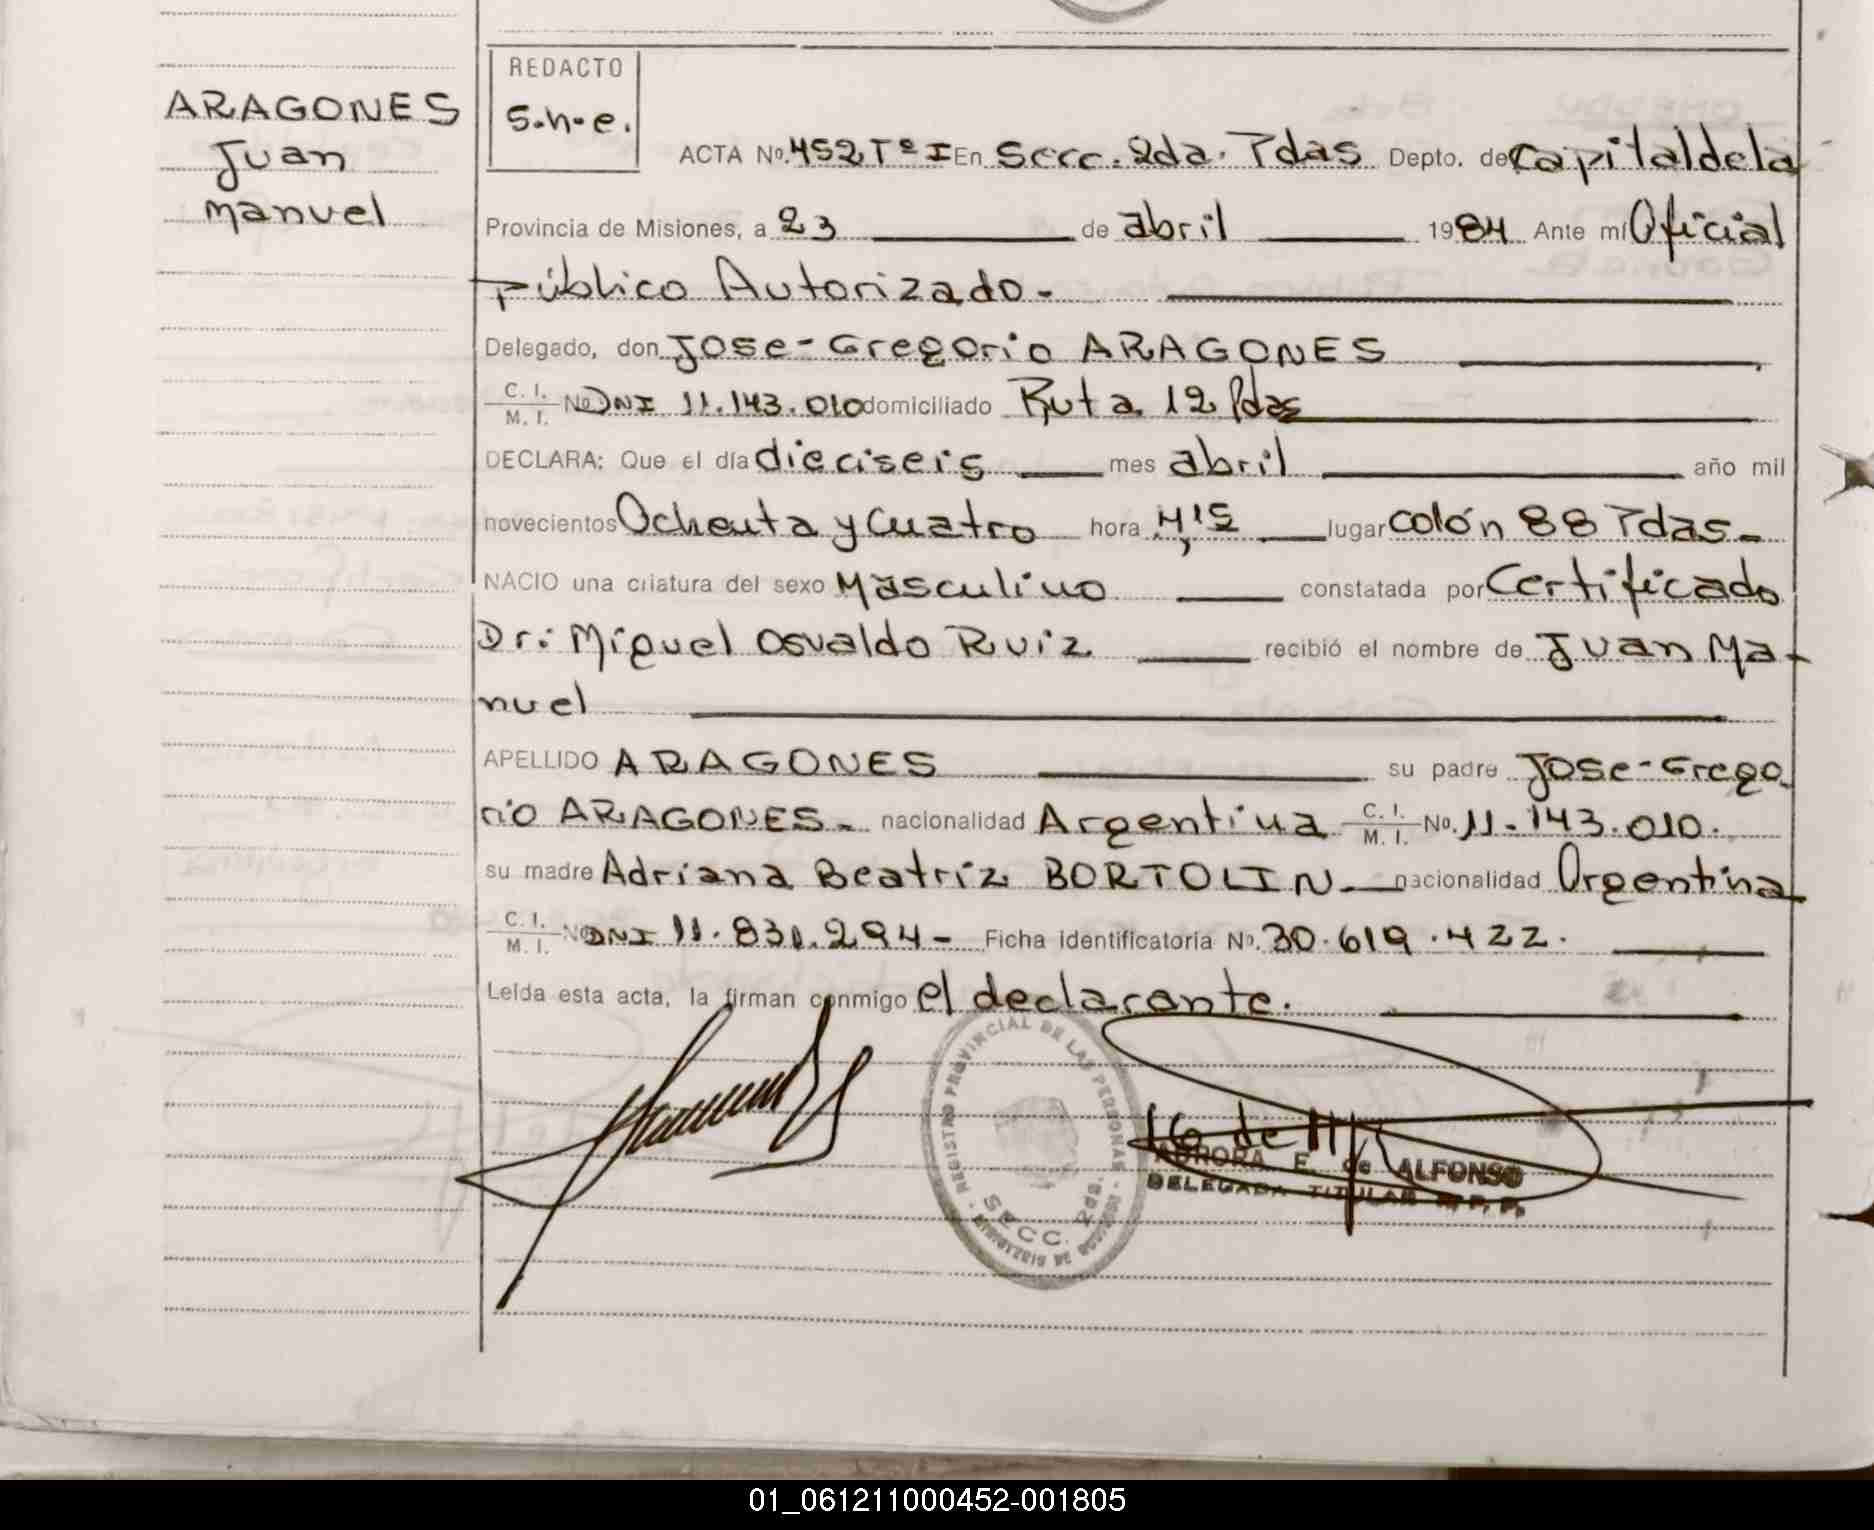 ARAGONES
Juan
Manuel
REDACTO
S.h.e.
ACTA Nº. 452 Tº I En Secc. 2da. Pdas Depto. de Capital de la
Provincia de Misiones, a 23 de abril 1984 Ante mí Oficial
Público Autorizado.
Delegado, don Jose-Gregorio ARAGONES
C. I.
M. I. Nº DNI 11.143.010 domiciliado Ruta 12 Pdas
DECLARA: Que el día dieciseis mes abril año mil
novecientos Ochenta y Cuatro hora 4,15 lugar Colón 88 Pdas-
NACIO una criatura del sexo Masculino constatada por Certificado
Dr: Miguel Osvaldo Ruiz recibió el nombre de Juan Ma-
nuel
APELLIDO ARAGONES su padre Jose-Grego
rio ARAGONES- nacionalidad Argentina C. I.
M. I. Nº. 11.143.010.
su madre Adriana Beatriz BORTOLIN- nacionalidad Argentina
C. I.
M. I. Nº DNI 11.831.294- Ficha identificatoria Nº. 30.619.422.
Leída esta acta, la firman conmigo el declarante.
REGISTRO PROVINCIAL DE LAS PERSONAS
SECC. 2da.
AURORA E. de ALFONSO
DELEGADA TITULAR R. P. P.
01_061211000452-001805